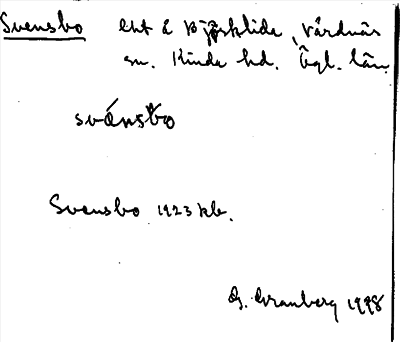 Svensbo lht å Björklida, Vårdnäs
sn. Kinda hd. Ögl. län.
svánsbo
Svensbo 1923 kb.
G. Granberg 1998